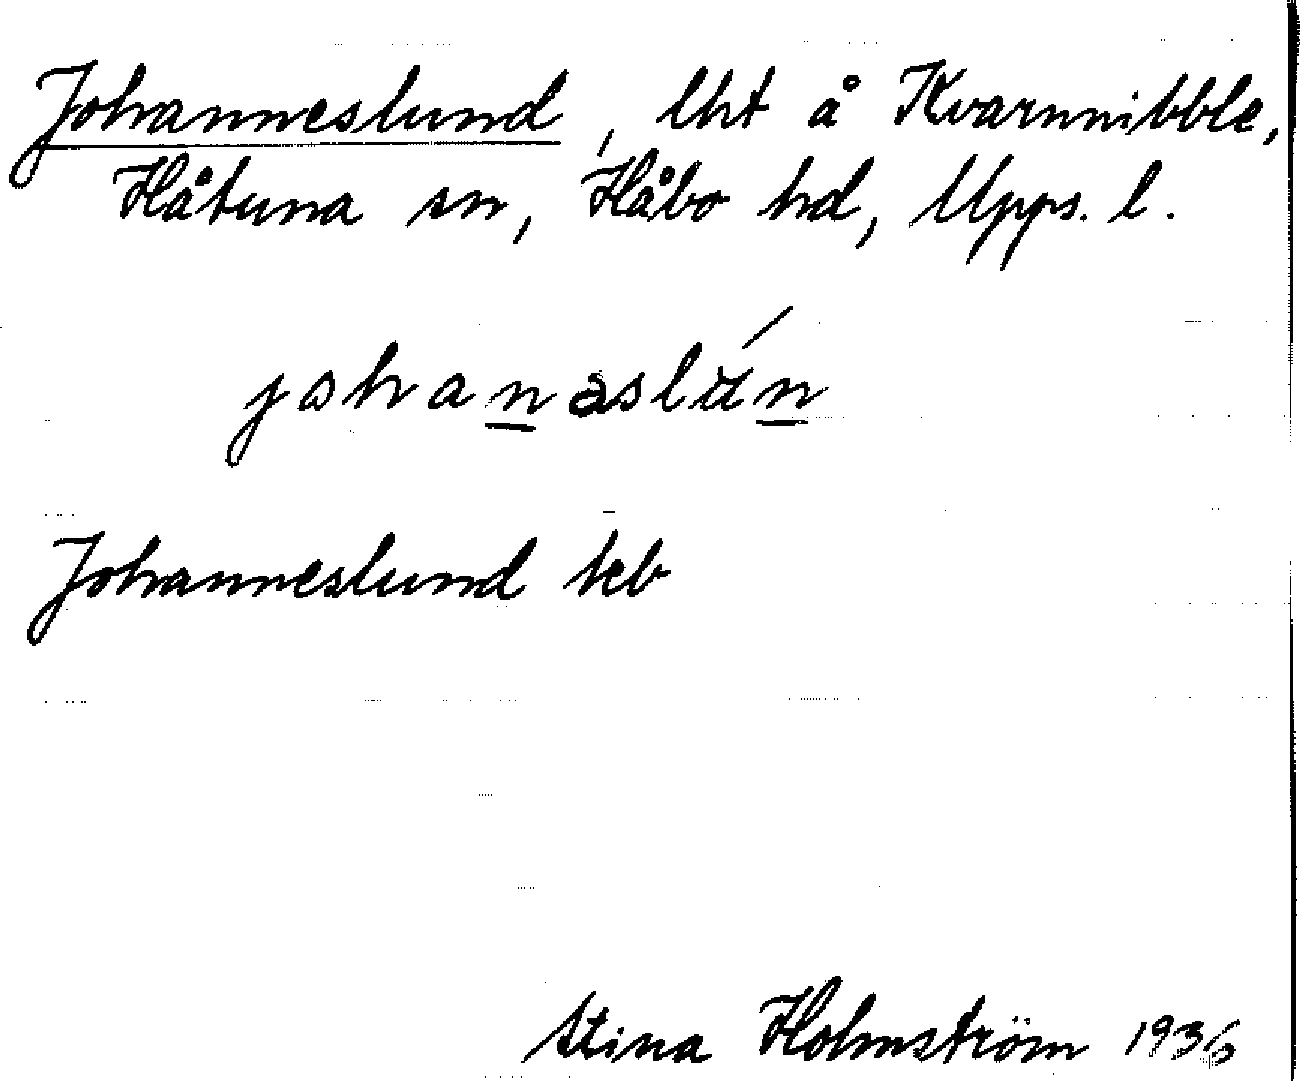 Johanneslund, lht å Kvarnnibble,
Håtuna sn, Håbo hd, Upps. l.
johanaslún
Johanneslund teb
Stina Holmström 1936